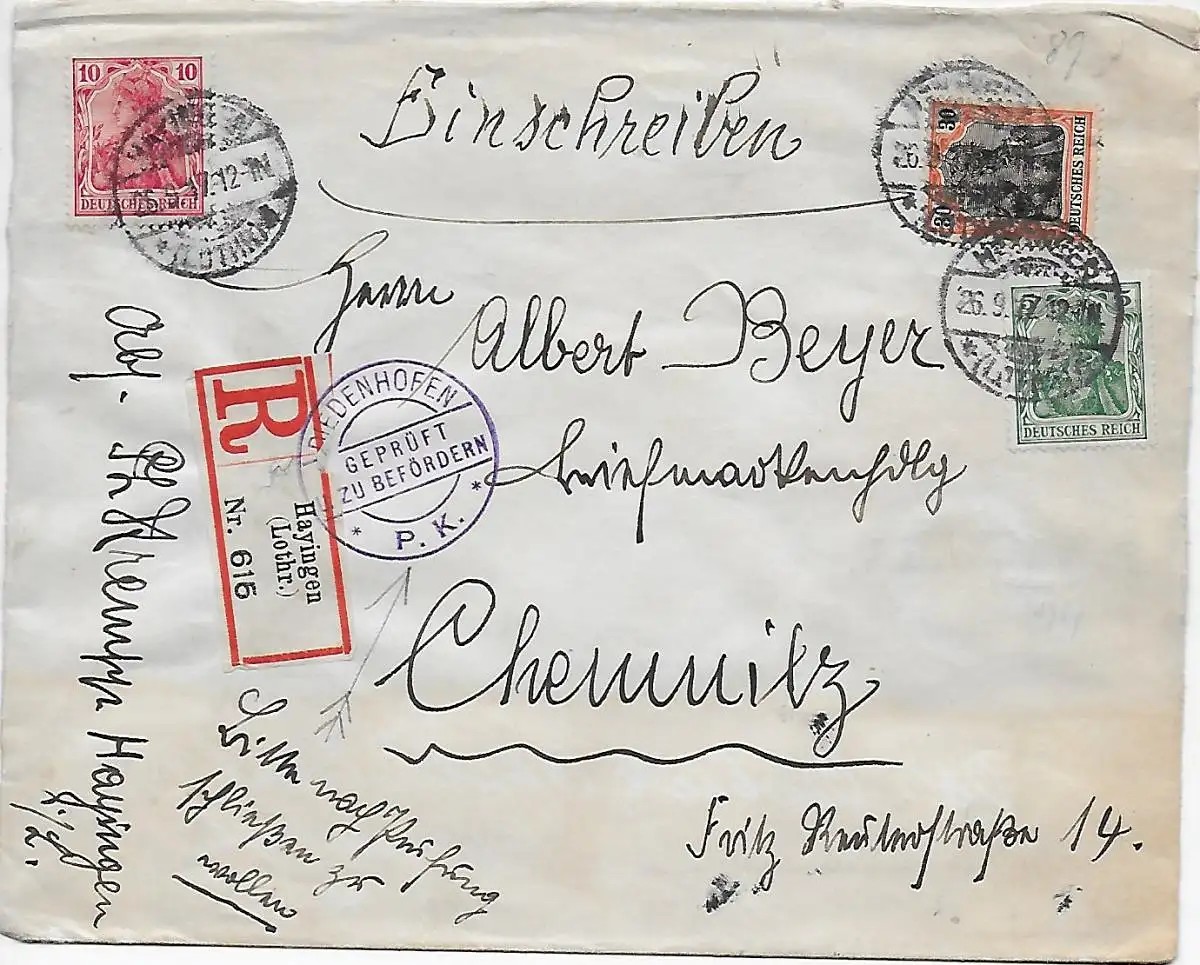 10 10
DEUTSCHES REICH
Einschreiben
89
30 30
DEUTSCHES REICH
5 5
DEUTSCHES REICH
26.9.17.12-1N
(LOTHR.)
HAYINGEN
26.9.17.12-1N
Herrn
Albert Beyer
Briefmarkenhdlg
Chemnitz
Fritz Reuterstraße 14.
R
Hayingen
(Lothr.)
Nr. 615
DIEDENHOFEN
GEPRÜFT
ZU BEFÖRDERN
* P. K. *
Abs. Krempp Hayingen
i/L.
Bitte nach Prüfung
schließen zu
wollen